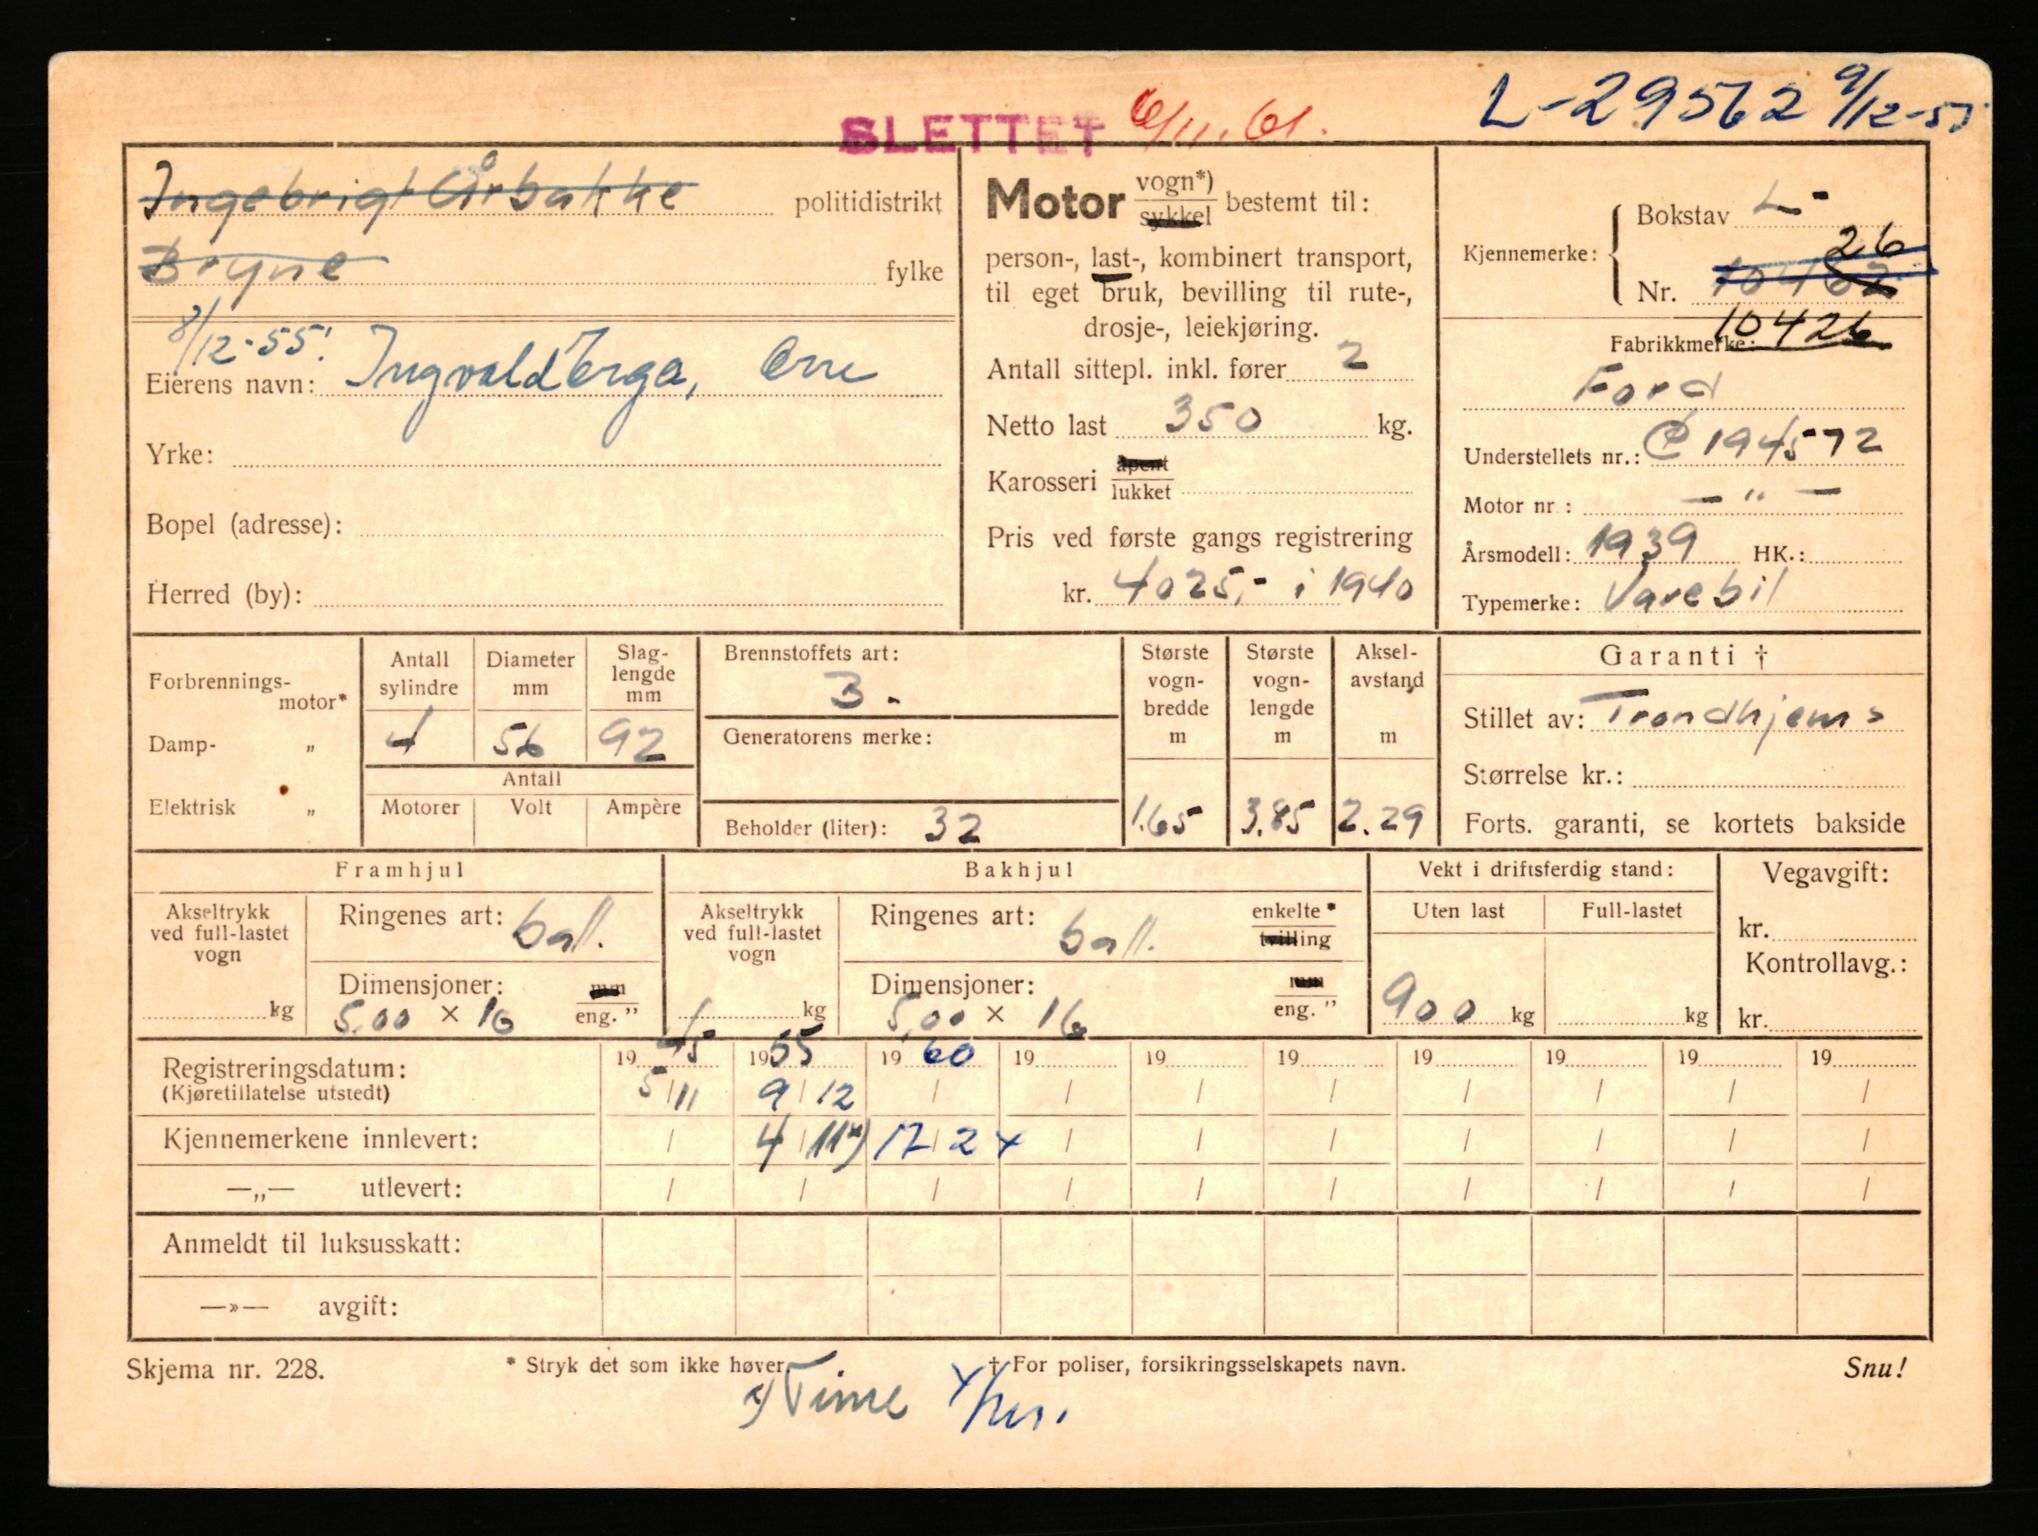 L-29562 9/12-55
SLETTET 6/11.61.
Ingebrigt Årbakke politidistrikt
Bryne fylke
8/12-55!
Eierens navn: Ingvald Erga, Orre
Yrke:
Bopel (adresse):
Herred (by):
Motor vogn*) sykkel bestemt til:
person-, last-, kombinert transport,
til eget bruk, bevilling til rute-,
drosje-, leiekjøring.
Antall sittepl. inkl. fører 2
Netto last 350 kg.
Karosseri åpent lukket
Pris ved første gangs registrering
kr. 4025,- i 1940
Kjennemerke: Bokstav L-
26
Nr. 10462
10426
Fabrikkmerke:
Ford
Understellets nr.: C 194572
Motor nr : — " —
Årsmodell: 1939 HK.:
Typemerke: Varebil
Forbrennings-motor*
Damp- „
Elektrisk „
Antall sylindre 4
Diameter mm 56
Slaglengde mm 92
Antall
Motorer Volt Ampère
Brennstoffets art:
B.
Generatorens merke:
Beholder (liter): 32
Største vogn-bredde m 1.65
Største vogn-lengde m 3.85
Aksel-avstand m 2.29
Garanti †
Stillet av: Trondhjems
Størrelse kr.:
Forts. garanti, se kortets bakside
Framhjul
Akseltrykk ved full-lastet vogn
kg
Ringenes art: ball.
Dimensjoner: mm
5,00 × 16 eng. "
Bakhjul
Akseltrykk ved full-lastet vogn
kg
Ringenes art: ball. enkelte* tvilling
Dimensjoner: mm
5,00 × 16 eng. "
Vekt i driftsferdig stand:
Uten last Full-lastet
900 kg kg
Vegavgift:
kr.
Kontrollavg.:
kr.
Registreringsdatum: 1945 1955 1960 19 19 19 19 19 19 19
(Kjøretillatelse utstedt) 5/11 9/12 / / / / / / / /
Kjennemerkene innlevert: / 4/11*) 17/2 x / / / / / / /
—„— utlevert: / / / / / / / / / /
Anmeldt til luksusskatt:
—»— avgift:
Skjema nr. 228. * Stryk det som ikke høver. † For poliser, forsikringsselskapets navn. Snu!
x) Time